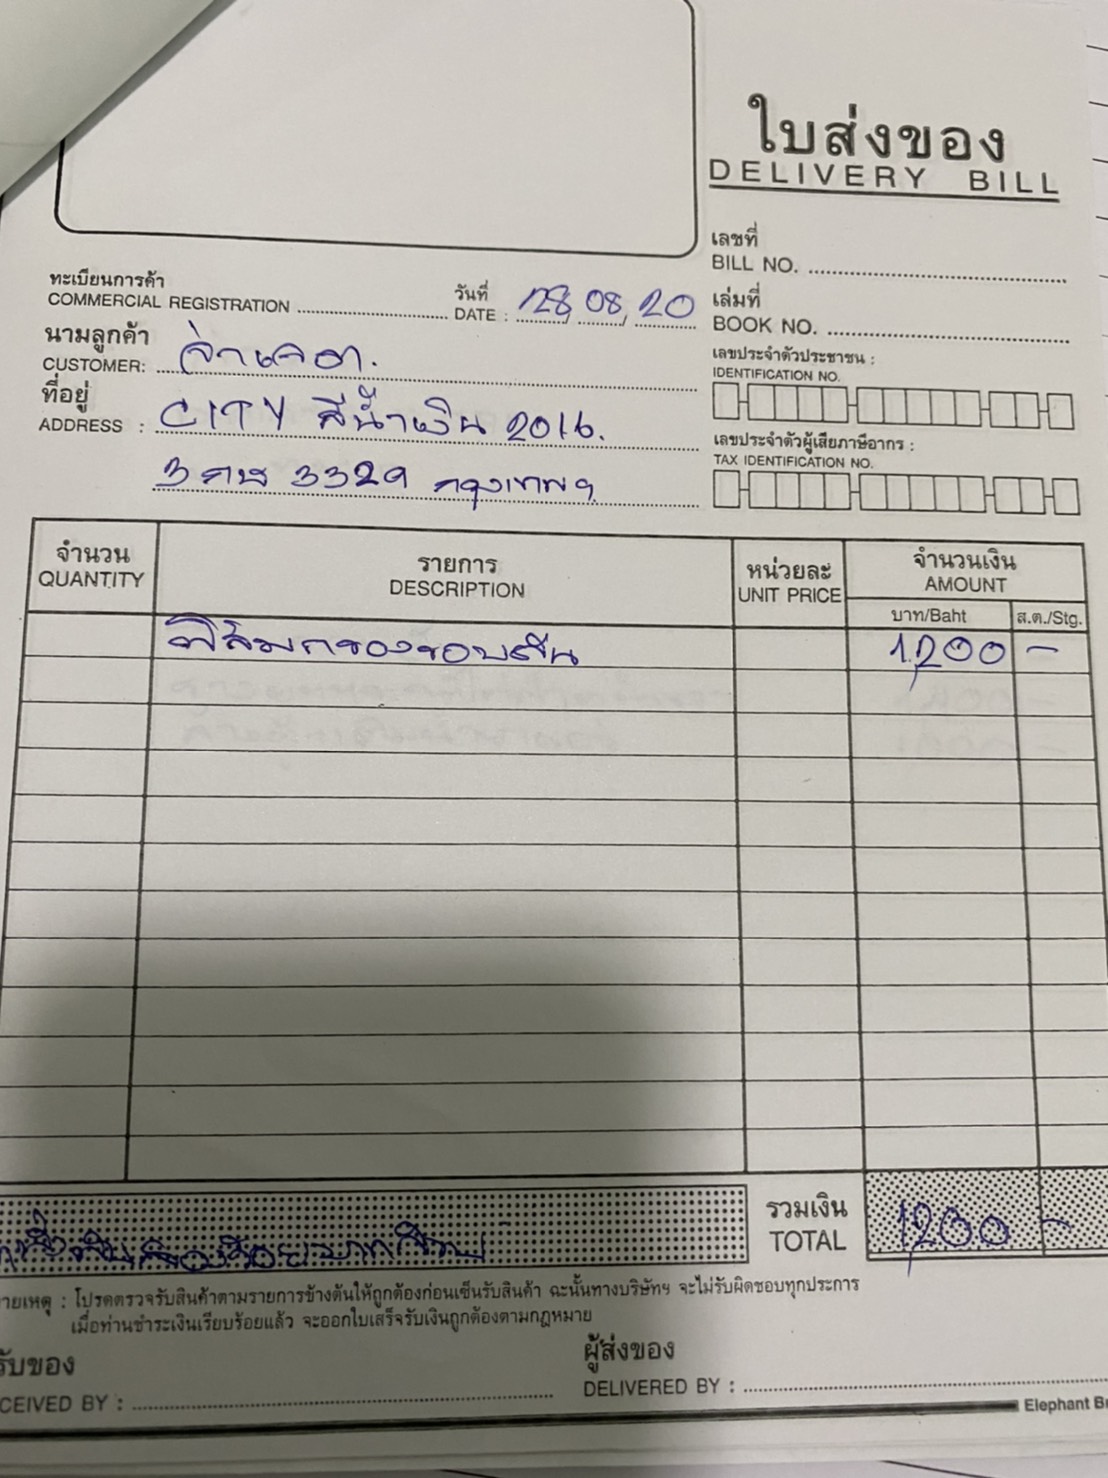 ใบส่งของ
DELIVERY BILL
เลขที่
BILL NO.
ทะเบียนการค้า
COMMERCIAL REGISTRATION
วันที่
DATE : 28, 08, 20
เล่มที่
BOOK NO.
นามลูกค้า
CUSTOMER: จ่าเจต.
เลขประจำตัวประชาชน :
IDENTIFICATION NO.
ที่อยู่
ADDRESS : CITY สีน้ำเงิน 2016.
3 3329 กรุงเทพฯ
เลขประจำตัวผู้เสียภาษีอากร :
TAX IDENTIFICATION NO.
จำนวน
QUANTITY
รายการ
DESCRIPTION
หน่วยละ
UNIT PRICE
จำนวนเงิน
AMOUNT
บาท/Baht ส.ต./Stg.
ฟิล์มกรองขอบตื้น 1,200 -
หนึ่งพันสองร้อยบาทถ้วน
รวมเงิน
TOTAL
1,200 -
หมายเหตุ : โปรดตรวจรับสินค้าตามรายการข้างต้นให้ถูกต้องก่อนเซ็นรับสินค้า ฉะนั้นทางบริษัทฯ จะไม่รับผิดชอบทุกประการ
เมื่อท่านชำระเงินเรียบร้อยแล้ว จะออกใบเสร็จรับเงินถูกต้องตามกฎหมาย
รับของ
CEIVED BY :
ผู้ส่งของ
DELIVERED BY :
Elephant